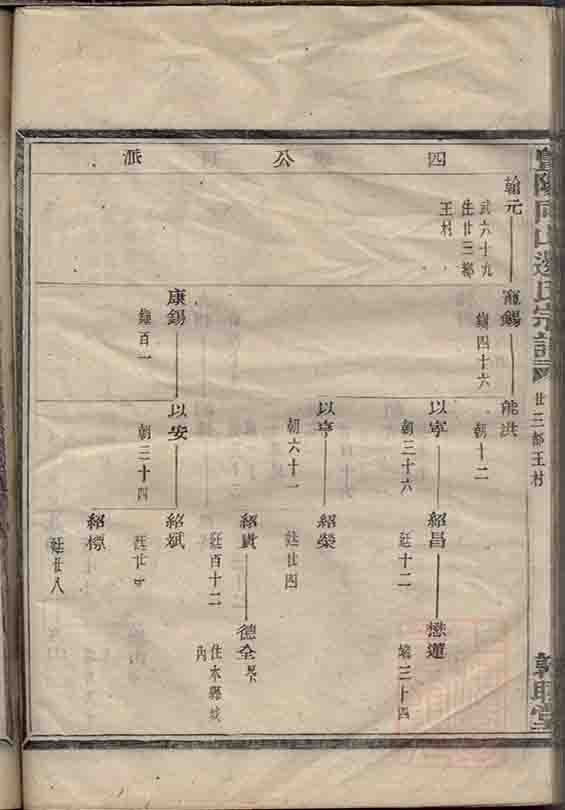 暨陽同山邊氏宗譜
廿三都王村
敦睦堂
四 公 派
翰元
武六十九
住廿三都
王村
寵錫
鎮四十六
熊洪
朝十二
以寧
朝三十六
紹昌
廷十二
懋蓮
端三十四
以亨
朝六十一
紹榮
廷廿四
紹貴
廷百十二
德全
住本縣城
內
康錫
鎮百一
以安
朝三十四
紹斌
紹標
廷廿八